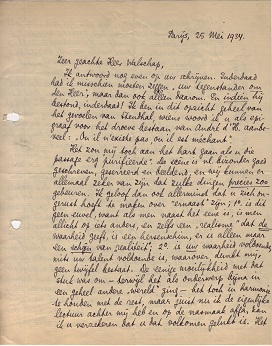 Parijs, 25 Mei 1934.
Zeer geachte Heer Walschap,
Ik antwoord nog even op uw schrijven. Inderdaad
had ik misschien moeten zeggen, uw tegenstander om
den Heer; maar dan ook alleen daarom. En indien hij
bestond, inderdaad! Ik ben in dit opzicht geheel van
het gevoelen van Stendhal, wiens woord ik u als epi-
graaf voor het droeve bestaan van André d' H. aanbe-
veel: On il n'existe pas, ou il est méchant.
Het zou mij toch aan het hart gaan als u die
passage erg "purifieerde". De scène is nl. bizonder goed
geschreven, geserreerd en beeldend, en wij kunnen er
allemaal zeker van zijn dat zulke dingen precies zoo
gebeuren. Ik geloof dan ook allerminst dat u zich on-
gerust hoeft te maken over "ernaast" zijn; 1º. is dit
geen euvel, want als men naast het eene is, is men
allicht op iets anders, en zelfs een "realisme" dat de
waarheid geeft, is een hersenschim, en is alleen maar
een schijn van realiteit; 2º. is uw waarheid voldoende,
mits uw talent voldoende is, waarover dunkt mij,
geen twijfel bestaat. De eenige moeilijkheid met dat
stuk was om — terwijl het als onderwerp bijna in
een geheel andere wereld ging — het toch in harmonie
te houden met de rest, maar juist nu ik de eigenlijke
lectuur achter mij heb en op de nasmaak afga, kan
ik u verzekeren dat u dat volkomen gelukt is. Het